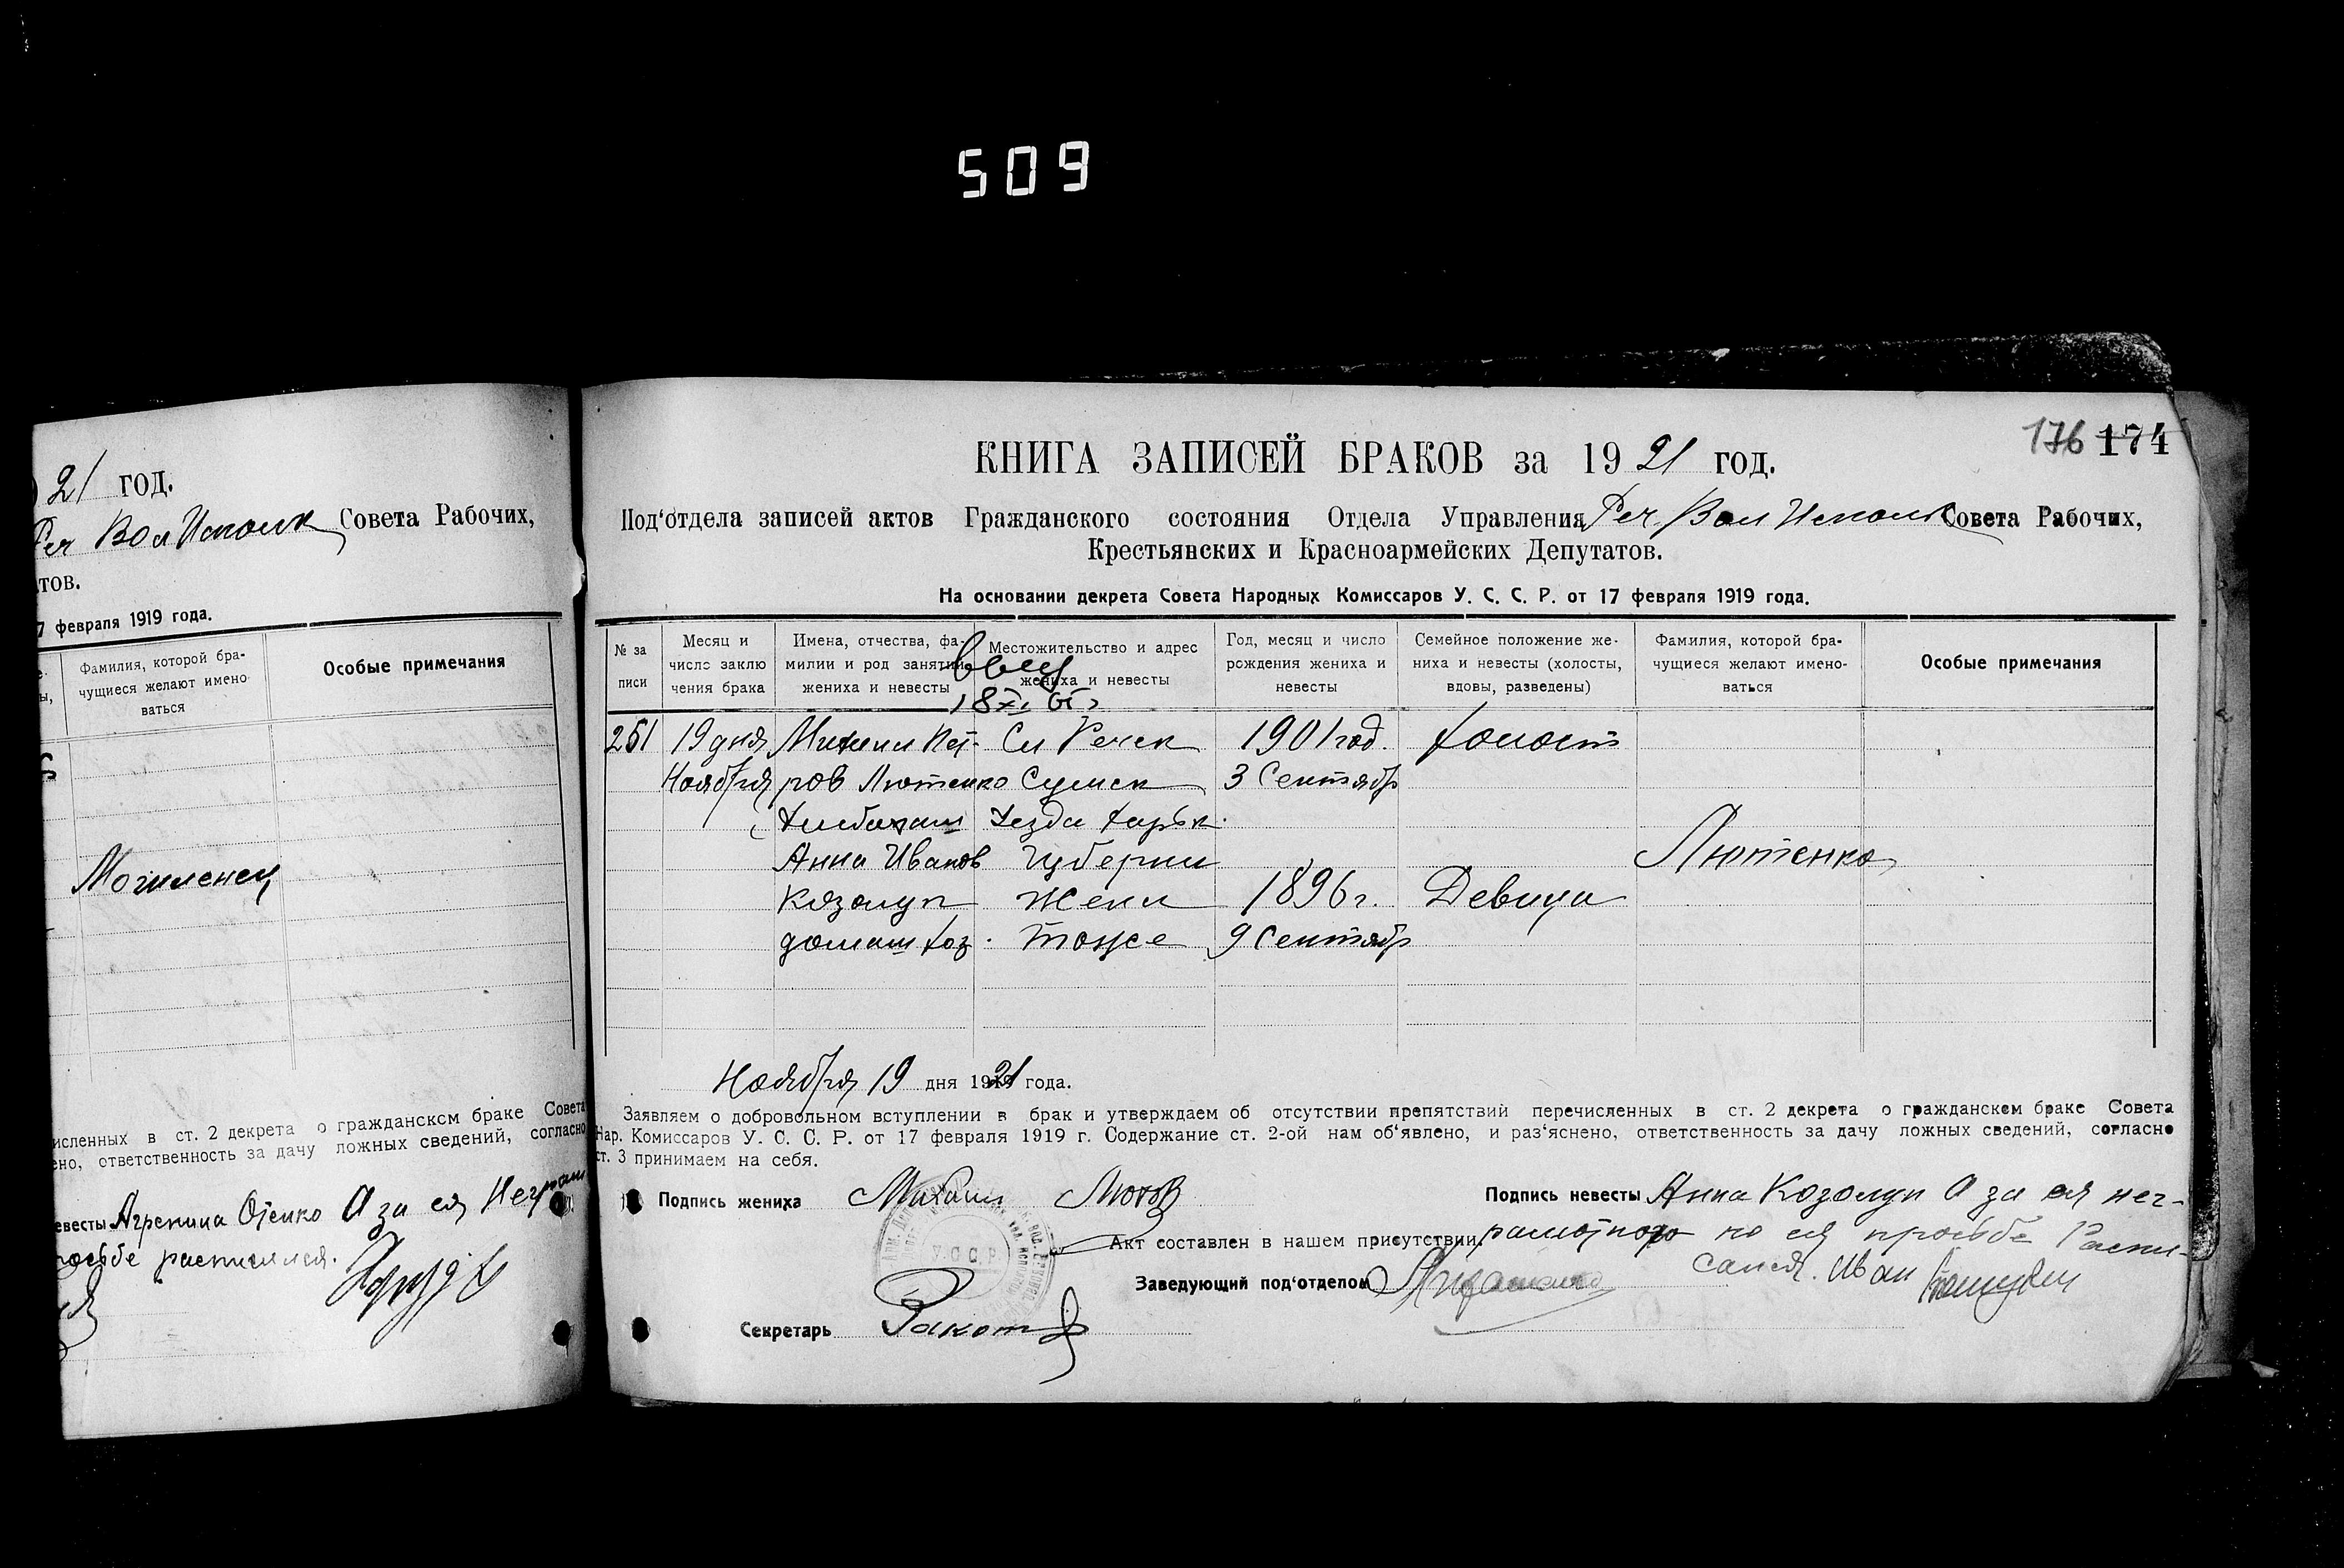 509
21 год.
Реч Вол Исполк Совета Рабочих,
тов.
7 февраля 1919 года.
Фамилия, которой бра-
чущиеся желают имено
ваться
Особые примечания
Могиленец
исленных в ст. 2 декрета о гражданском браке Совета
ено, ответственность за дачу ложных сведений, согласно
евесты Агрепина А за ея Неграм
прозьбе расписался.
176 174
КНИГА ЗАПИСЕЙ БРАКОВ за 1921 год.
Под'отдела записей актов Гражданского состояния Отдела Управления Реч. Вол Исполк Совета Рабочих,
Крестьянских и Красноармейских Депутатов.
На основании декрета Совета Народных Комиссаров У. С. С. Р. от 17 февраля 1919 года.
№ за
писи
Месяц и
число заклю
чения брака
Имена, отчества, фа-
милии и род занятий
жениха и невесты
Местожительство и адрес
жениха и невесты
Год, месяц и число
рождения жениха и
невесты
Семейное положение же-
ниха и невесты (холосты,
вдовы, разведены)
Фамилия, которой бра-
чущиеся желают имено-
ваться
Особые примечания
251 19 дня Михаил Пет- Сл Речек 1901 год. холост
Ноября ров Лютенко Сумск 3 Сентябр
хлебопаш Уезда Харьк.
Анна Иванов Губерни Лютенко
Козолуп Жени 1896 г. Девица
домаш хоз. тоже 9 Сентябр
Ноября 19 дня 1921 года.
Заявляем о добровольном вступлении в брак и утверждаем об отсутствии препятствий перечисленных в ст. 2 декрета о гражданском браке Совета
Нар. Комиссаров У. С. С. Р. от 17 февраля 1919 г. Содержание ст. 2-ой нам об'явлено, и раз'яснено, ответственность за дачу ложных сведений, согласно
ст. 3 принимаем на себя.
Подпись жениха Михаил
Подпись невесты Анна Козолуп А за ея нег-
Акт составлен в нашем присутствии. рамотною по ея прозьбе Распи-
сался. Иван
Заведующий под'отделом
Секретарь
У.С.С.Р.